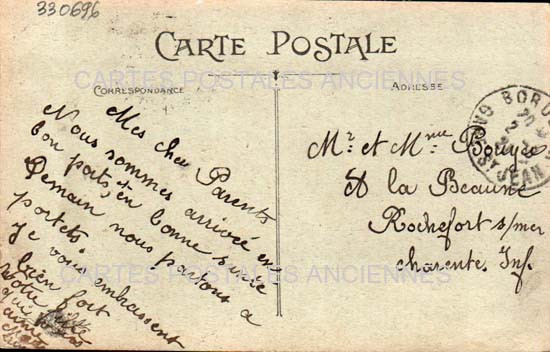 330696
CARTE POSTALE
CARTES POSTALES ANCIENNES
CORRESPONDANCE
ADRESSE
Mes cher Parents
Nous sommes arrivée en
bon ports, en bonne
Demain nous partons a
portets
Je vous embrassent
bien fort
Votre
qui vous
aime
Mr et Mme Bouyé
A la Beaune
Rochefort s/mer
charente Inf.
BORD
JEAN
CARTES POSTALES ANCIENNES